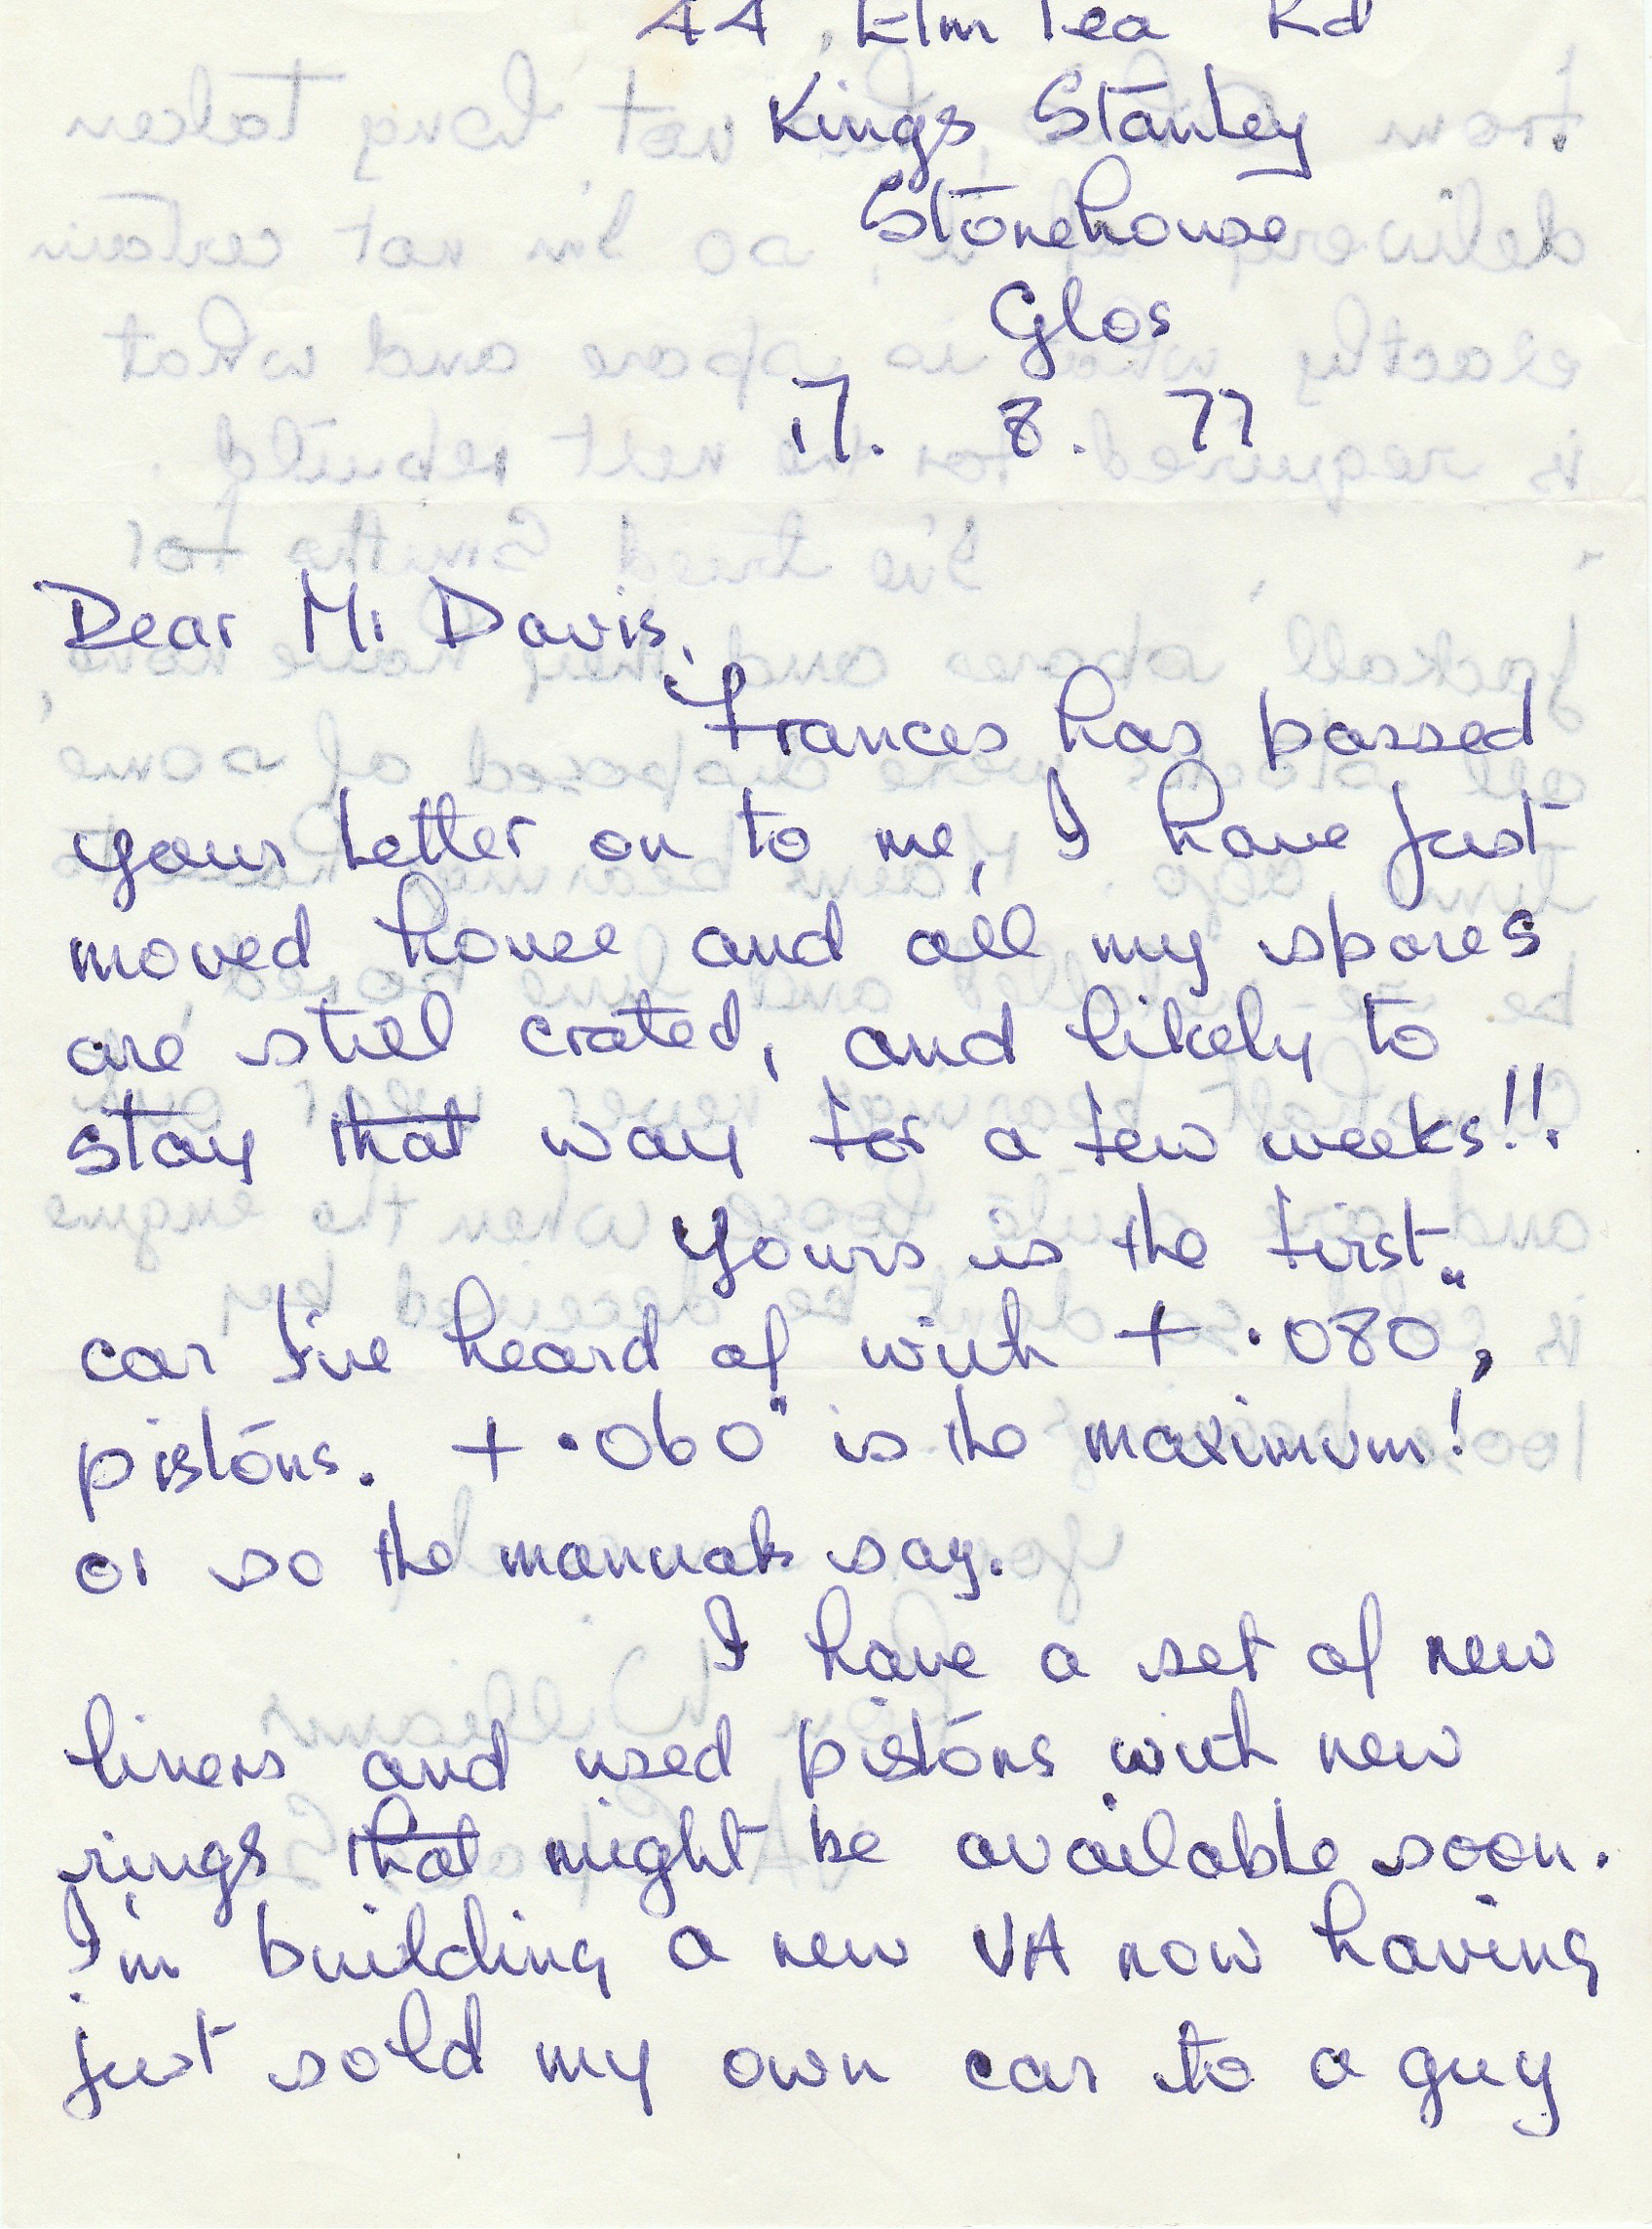 44, Elm Lea Rd
Kings Stanley
Stonehouse
Glos
17. 8. 77
Dear Mr Davis,
Frances has passed
your letter on to me, I have just
moved house and all my spares
are still crated, and likely to
stay that way for a few weeks!!
Yours is the first
car I've heard of with + .080",
pistons. + .060" is the maximum!
or so the manuals say.
I have a set of new
liners and used pistons with new
rings that might be available soon.
I'm building a new VA now having
just sold my own car to a guy